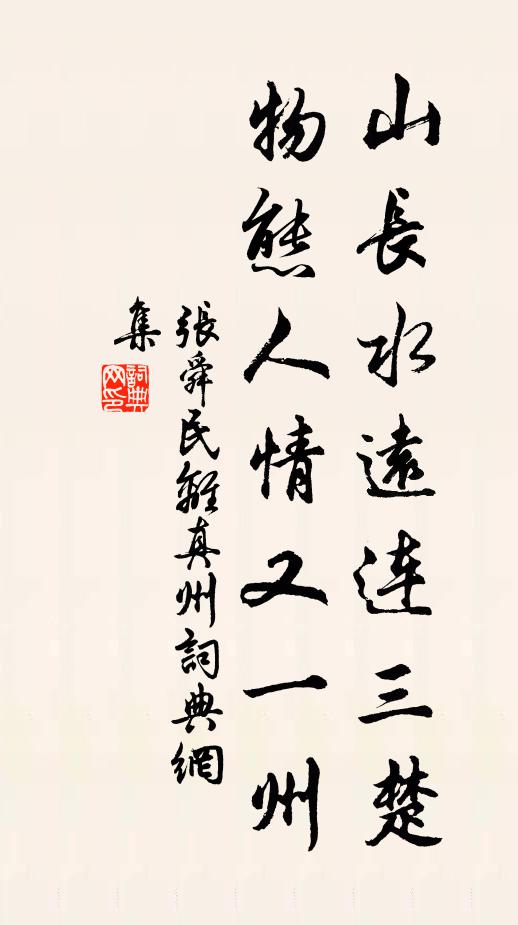 山長水遠連三楚
物態人情又一州
張舜民離真州詞典網
集
詞典
网印